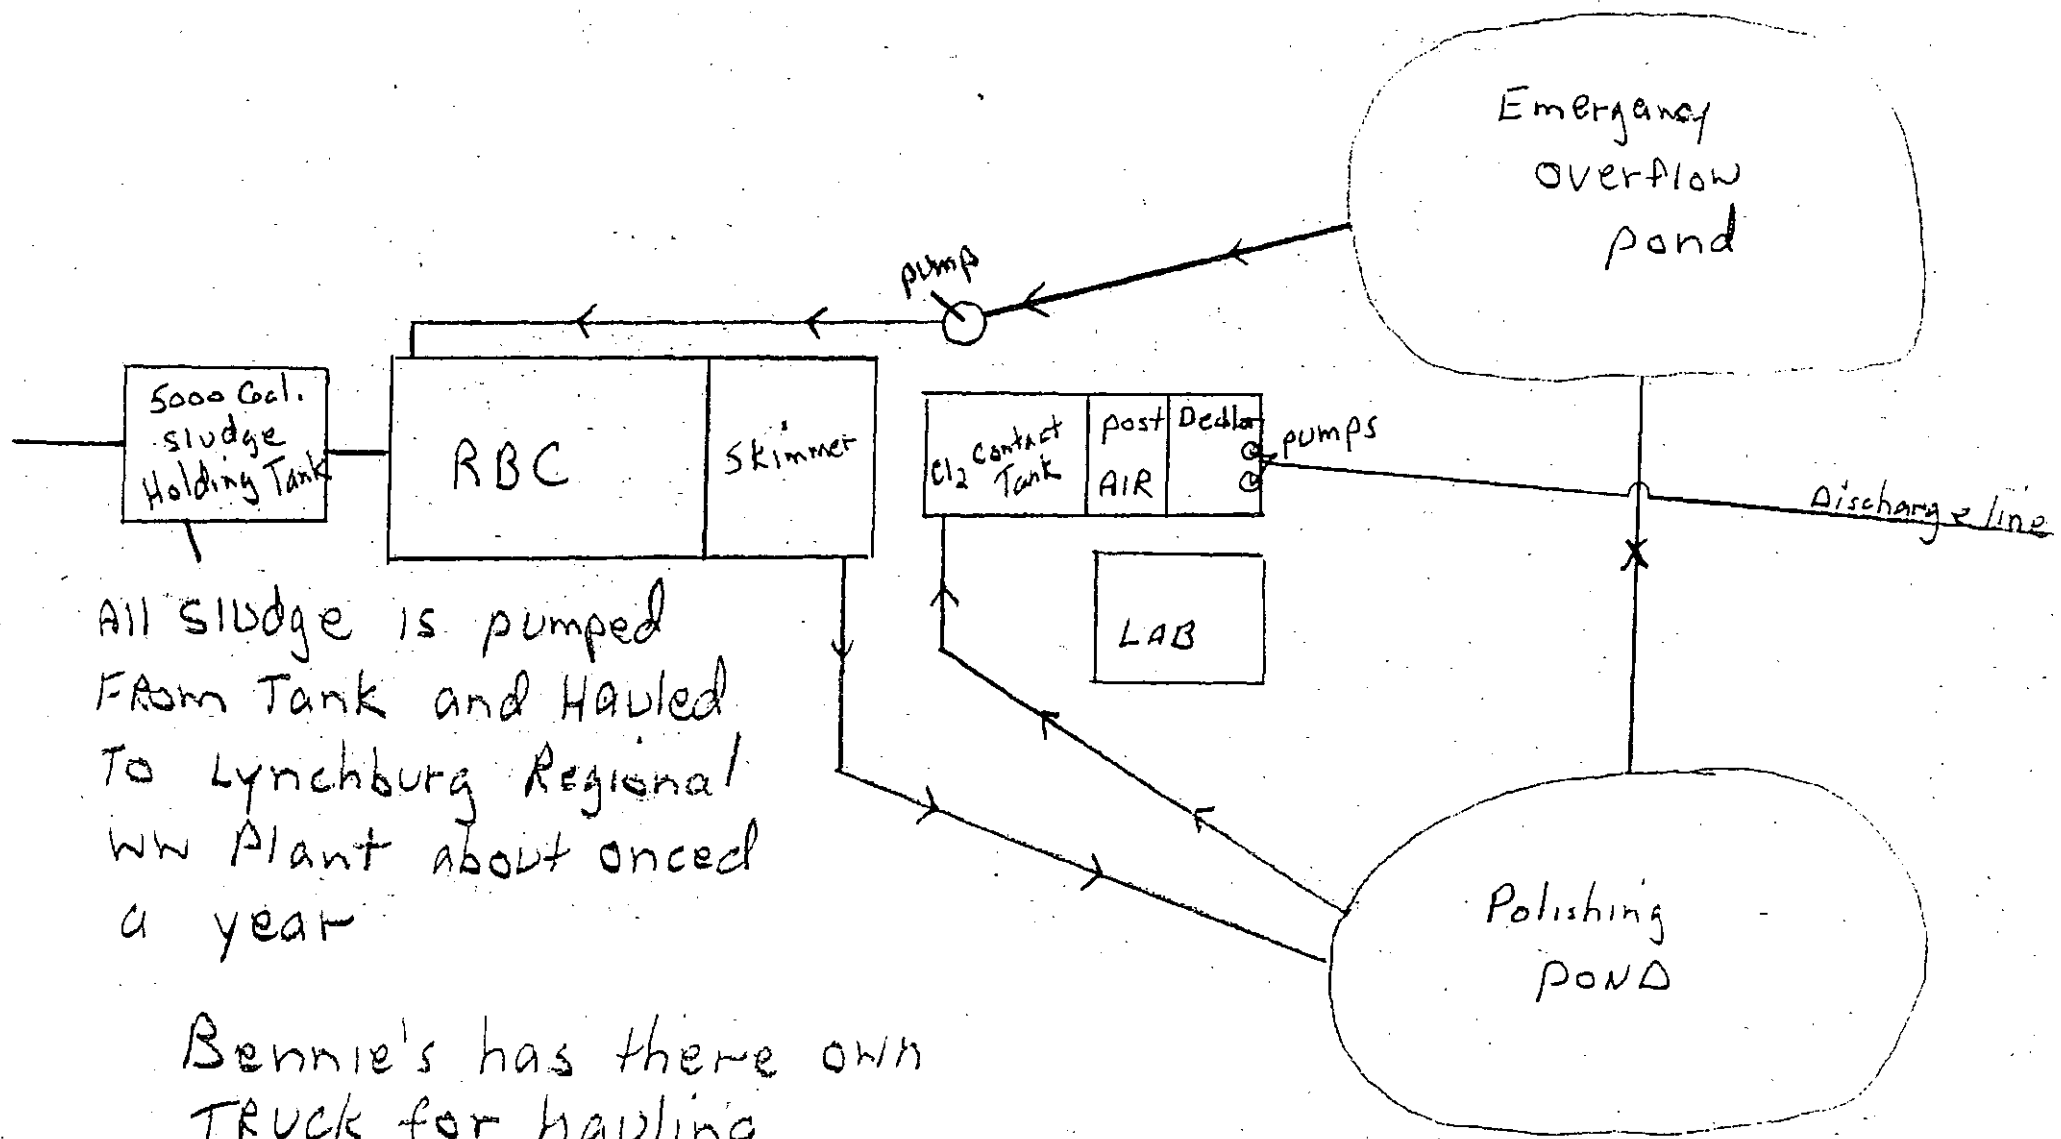 Emergancy
overflow
pond
pump
5000 Gal.
sludge
Holding Tank
RBC
Skimmer
Cl2 Contact
Tank
post
AIR
Dechlor
pumps
Discharge line
LAB
All Sludge is pumped
From Tank and Hauled
To Lynchburg Regional
WW Plant about onced
a year
Polishing
POND
Bennie's has there own
TRUCK for hauling